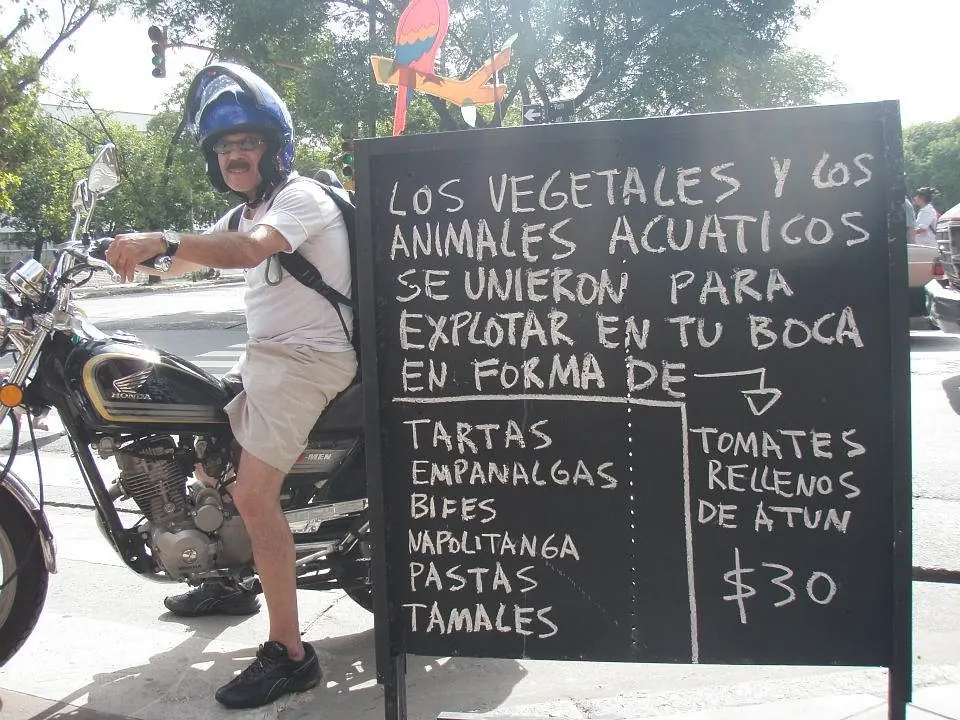 LOS VEGETALES Y LOS
ANIMALES ACUATICOS
SE UNIERON PARA
EXPLOTAR EN TU BOCA
EN FORMA DE
TARTAS
EMPANALGAS
BIFES
NAPOLITANGA
PASTAS
TAMALES
TOMATES
RELLENOS
DE ATUN
$30
HONDA
-MEN